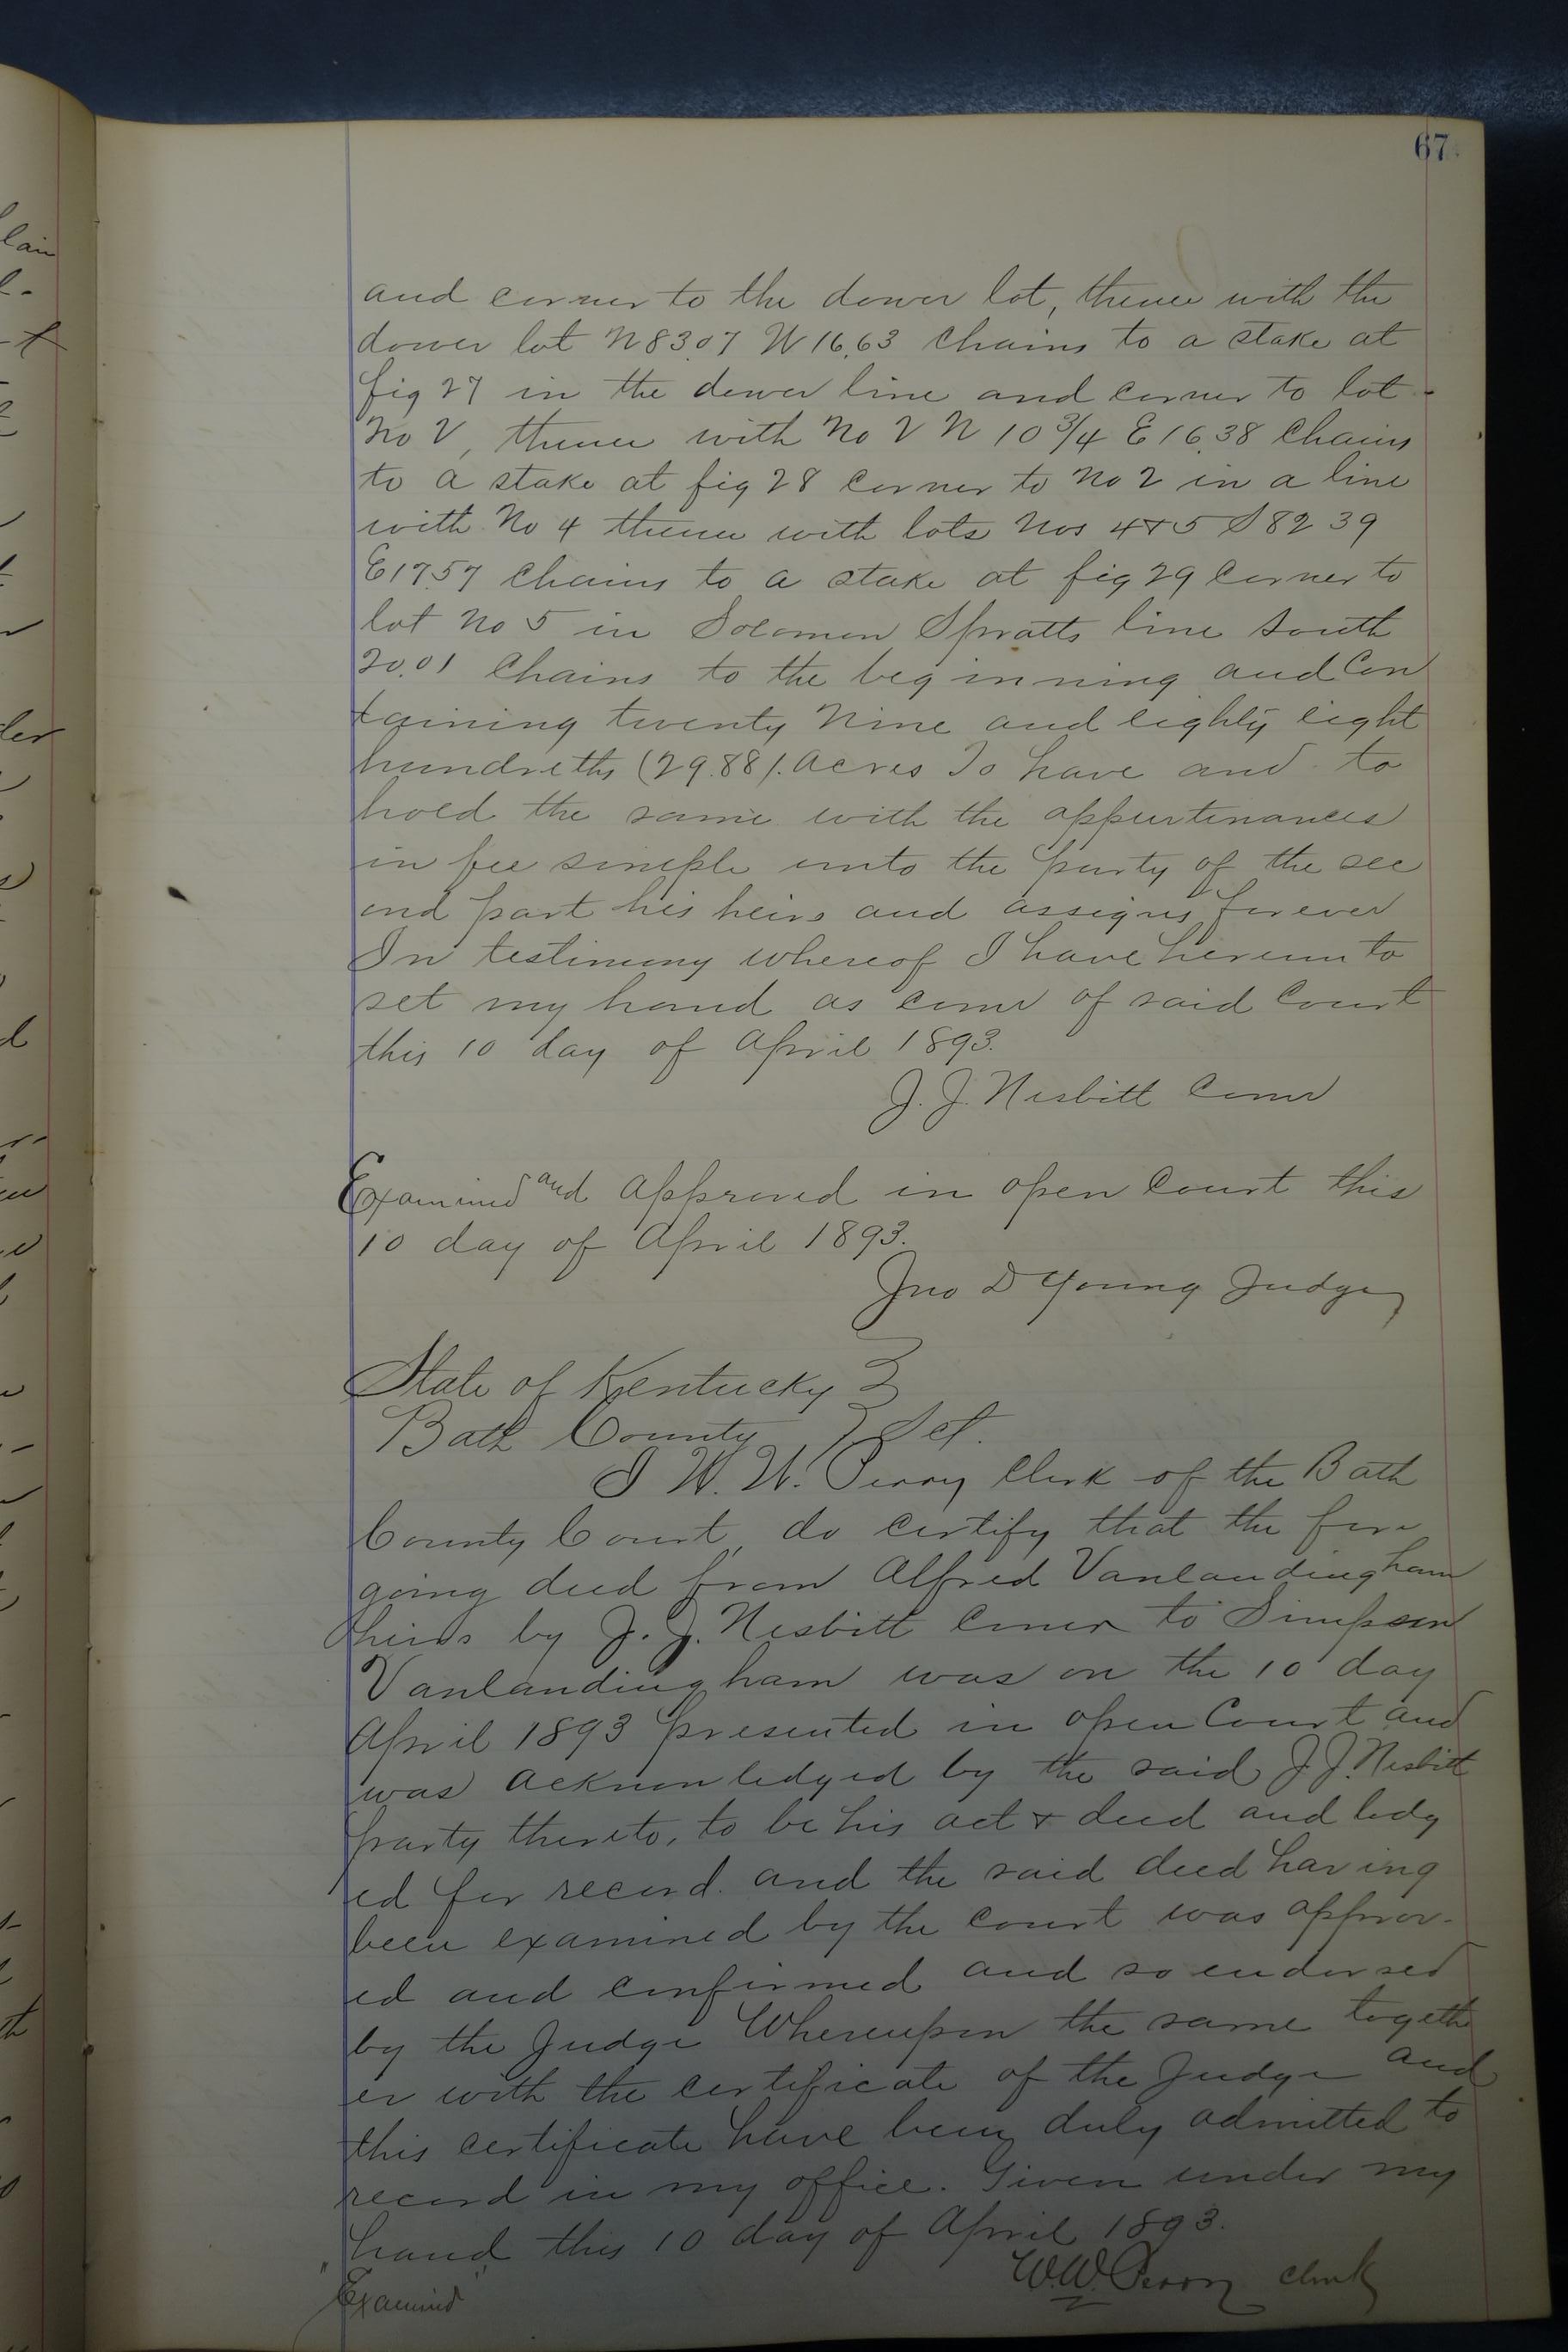 67
and corner to the dower lot, thence with the
dower lot N 83.07 W 16.63 chains to a stake at
fig 27 in the dower line and corner to lot
No 2, thence with No 2 N 10 3/4 E 16.38 chains
to a stake at fig 28 corner to No 2 in a line
with No 4 thence with lots Nos 4 & 5 S 82 39
E 17.57 chains to a stake at fig 29 corner to
lot No 5 in Solomon Spratts line South
20.01 chains to the beginning and Con
taining twenty Nine and eighty eight
hundreths (29.88). acres To have and to
hold the same with the appurtinances
in fee simple unto the party of the sec
ond part his heirs and assigns forever
In testimony whereof I have hereunto
set my hand as comr of said Court
this 10 day of April 1893.
J. J. Nesbitt Comr
Examined and approved in open Court this
10 day of April 1893.
Jno D Young Judge
State of Kentucky }
Bath County } Sct.
I W. W. Perry Clerk of the Bath
County Court, do certify that the fore
going deed from Alfred Vanlandingham
heirs by J. J. Nesbitt Comr to Simpson
Vanlandingham was on the 10 day
April 1893 presented in open Court and
was acknowledged by the said J. J. Nesbitt
party thereto, to be his act & deed and lodg
ed for record. and the said deed having
been examined by the Court was approv-
ed and confirmed and so endorsed
by the Judge Whereupon the same togeth
er with the certificate of the Judge and
this certificate have been duly admitted to
record in my office. Given under my
hand this 10 day of April 1893.
W. W. Perry Clerk
"Examined"